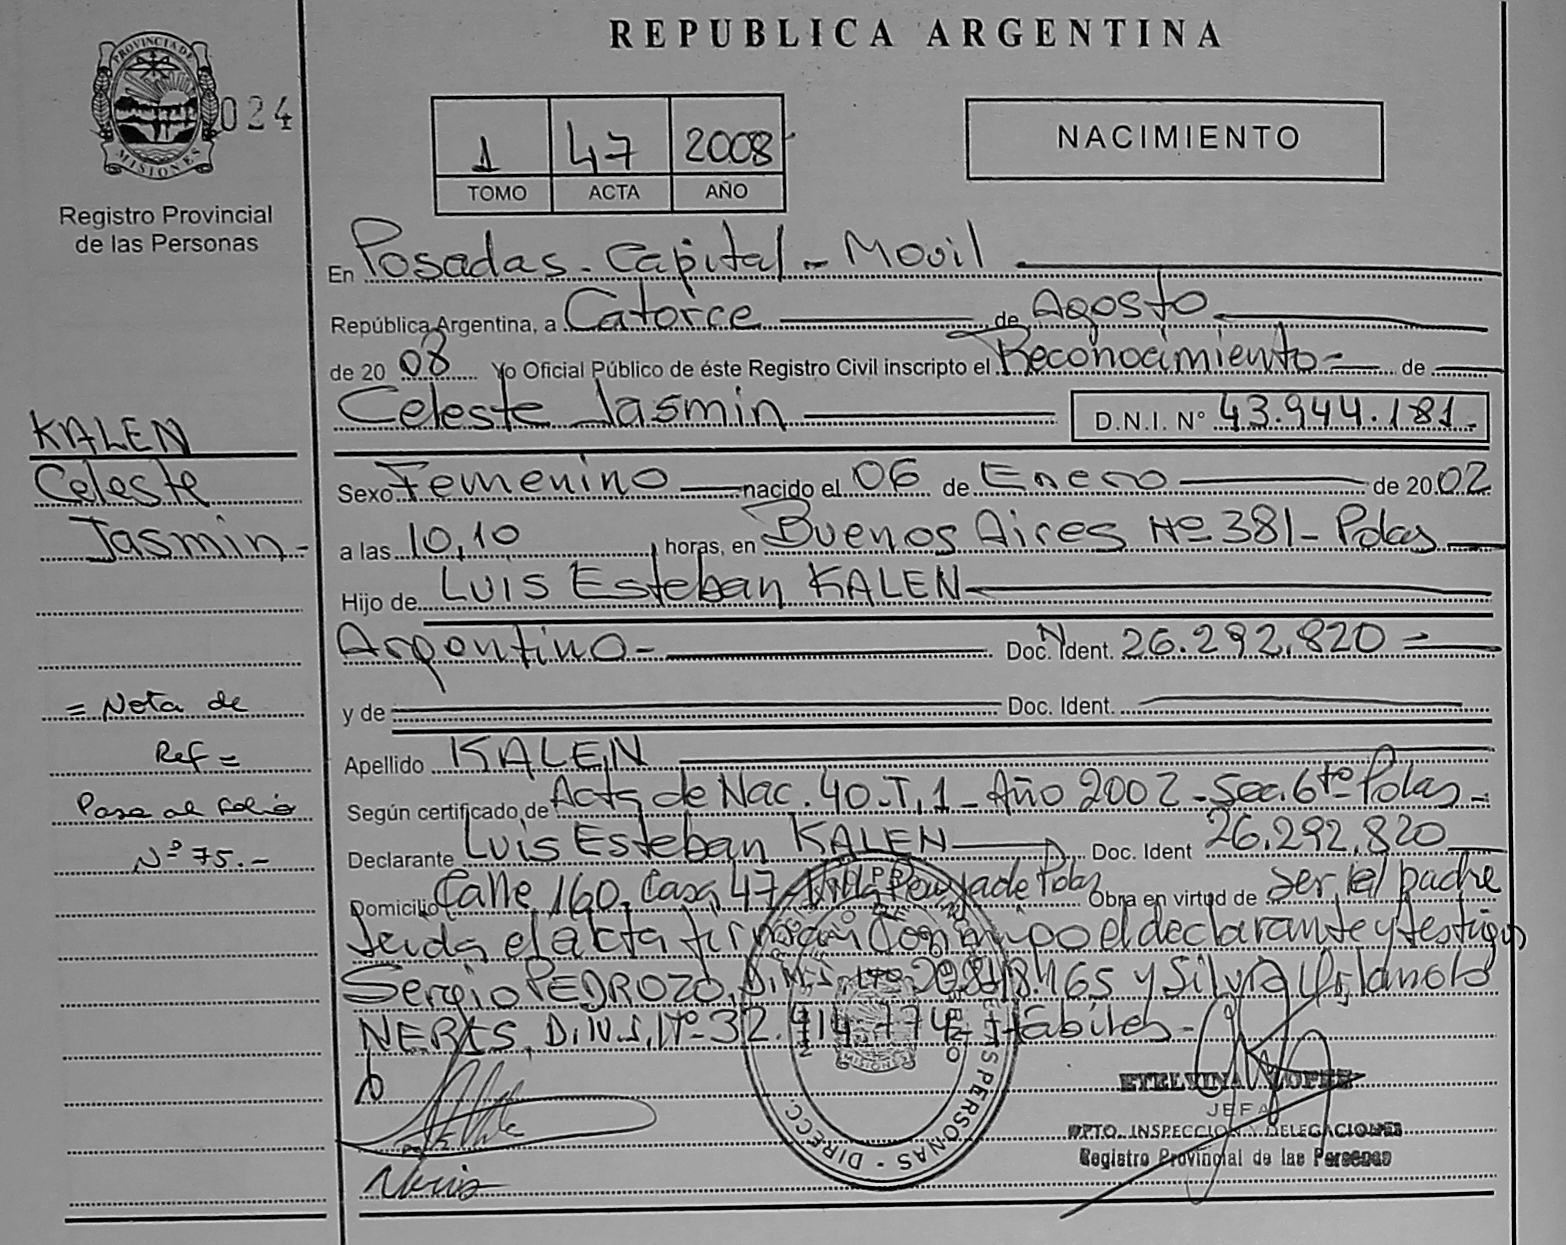 REPUBLICA ARGENTINA
PROVINCIA DE
MISIONES
024
Registro Provincial
de las Personas
1 47 2008
TOMO ACTA AÑO
NACIMIENTO
En Posadas - Capital - Movil
República Argentina, a Catorce de Agosto
de 20 08 Yo Oficial Público de éste Registro Civil inscripto el Reconocimiento de
Celeste Jasmin D.N.I. Nº 43.944.181.
KALEN
Celeste
Jasmin -
Sexo Femenino nacido el 06 de Enero de 20 02
a las 10,10 horas, en Buenos Aires Nº 381 - Pdas
Hijo de LUIS Esteban KALEN
Argentino - Doc. Ident. 26.292.820 =
y de Doc. Ident.
= Nota de
Ref =
Pasa al folio
Nº 75.-
Apellido KALEN
Según certificado de Acta de Nac. 40 - T. 1 - Año 2002 - Sec. 6ta Pdas -
Declarante Luis Esteban KALEN Doc. Ident 26.292.820
Domicilio Calle 160, Casa 47 - Villa de Pdas Obra en virtud de ser el padre
leida el acta firman conmigo el declarante y testigos
Sergio PEDROZO, D.N.I. Nº y Silvia
NERIS, D.N.I. Nº 32. Hábiles -
ETELVINA LOPEZ
JEFA
DPTO. INSPECCION DELEGACIONES
Registro Provincial de las Personas
DIRECC. PERSONAS
MISIONES
Neris